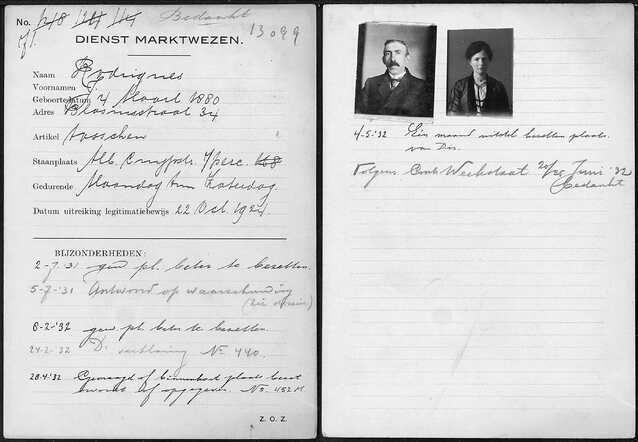 No. 248 Bedankt
13099
DIENST MARKTWEZEN.
Naam Rodrigues
Voornamen J.
Geboortedatum 4 Maart 1880
Adres Blasiusstraat 34
Artikel tasschen
Staanplaats Alb. Cuypstr. Yperc. 168
Gedurende Maandag t/m Zaterdag
Datum uitreiking legitimatiebewijs 22 Oct. 1924
BIJZONDERHEDEN:
2-7-'31 gew. pl. beter te bezetten.
5-7-'31 Antwoord op waarschuwing
8-2-'32 gew. pl. beter te bezetten.
24-2-'32 D. verklaring No. 440.
28-4-'32 Gevraagd of binnenkort plaats bezet
wordt of opgegeven. No. 452 M
Z.O.Z.
4-5-'32 Een maand uitstel bezetten plaats
van Dir.
Volgens Contr. Weekstaat 20/26 Juni '32
bedankt